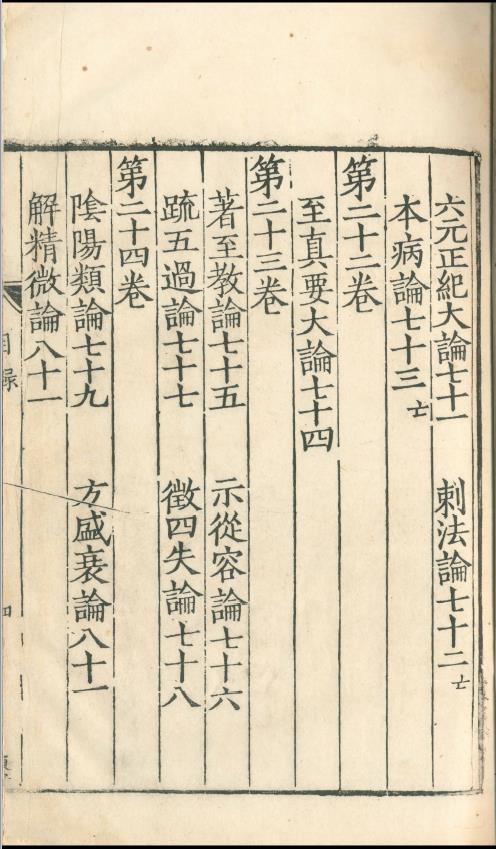 六元正紀大論七十一　刺法論七十二亡
本病論七十三亡
第二十二卷
至真要大論七十四
第二十三卷
著至教論七十五　示從容論七十六
䟽五過論七十七　徵四失論七十八
第二十四卷
隂陽類論七十九　方盛衰論八十一
解精微論八十一
目録